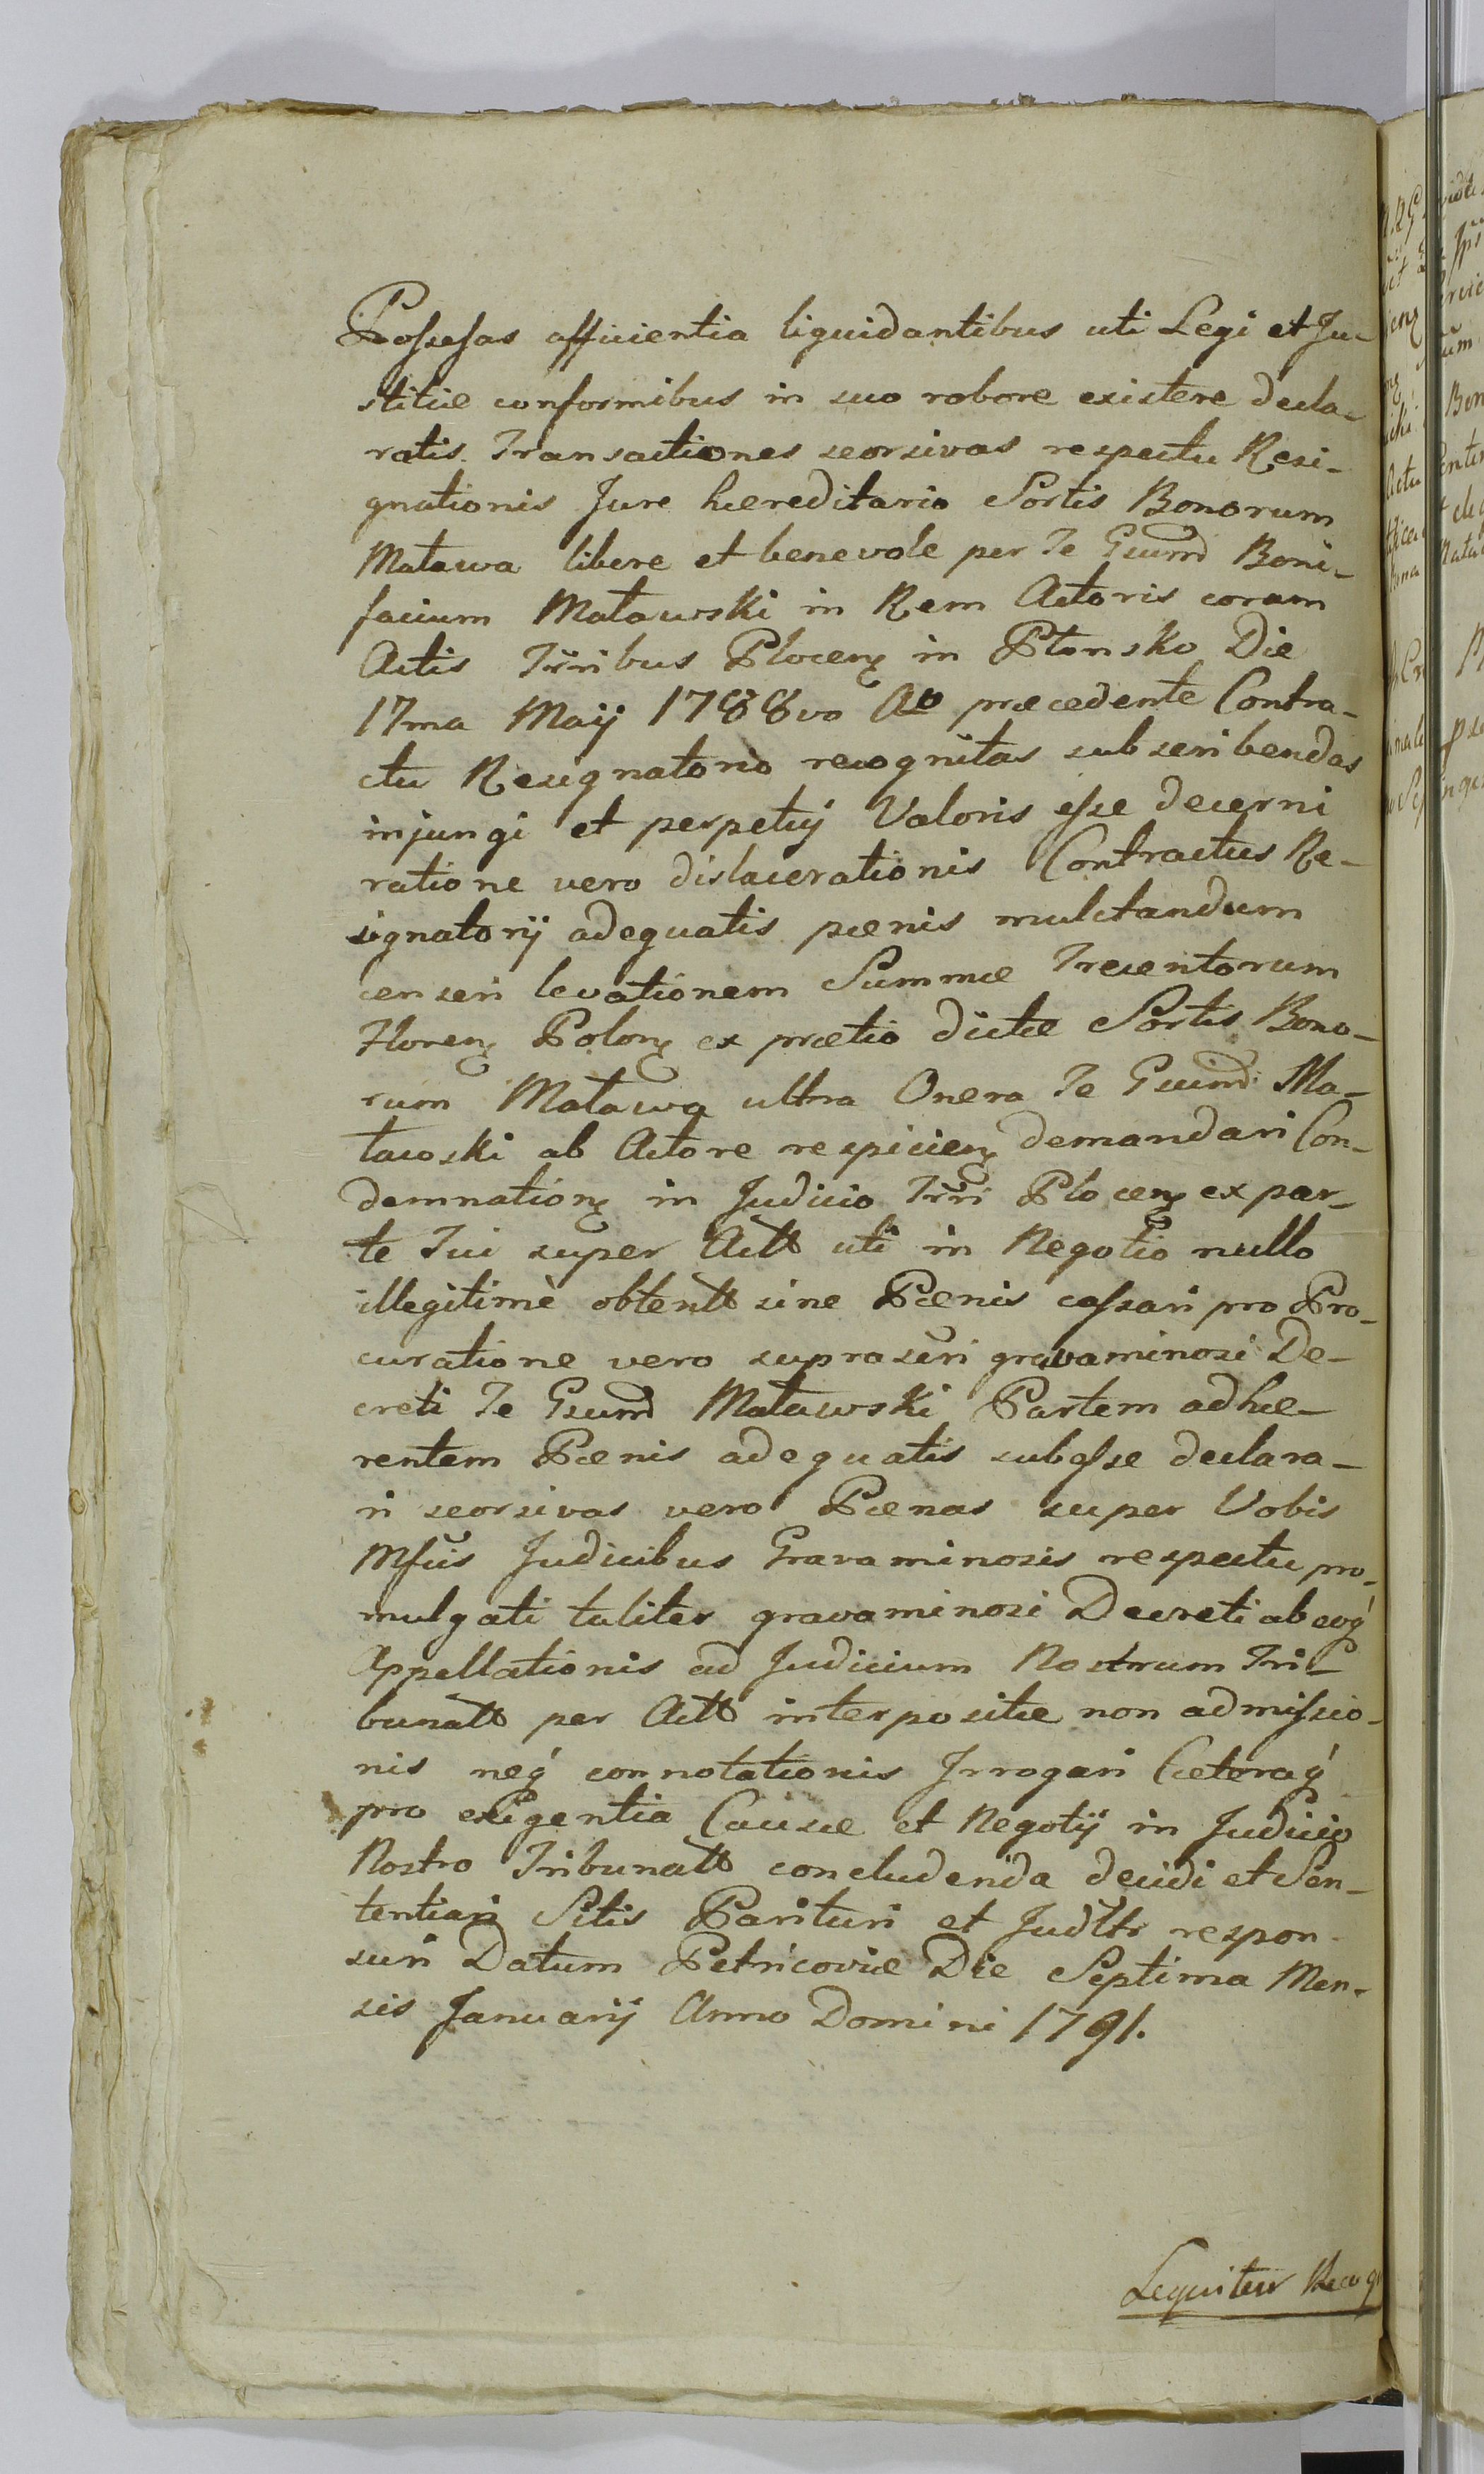 Possessas afficientia liquidantibus uti Legi et Ju-
stitiæ conformibus in suo robore existere decla-
ratis. Transactiones seorsivas respectu Resi-
gnationis Jure hæreditario Sortis Bonorum
Matawa libere et benevole per Te Gsum̃d Boni-
facium Matawski in Rem Actoris coram
Actis Tr̃ribus Plocenȝ in Płonsko Die
17ma Maij 1788vo Ao præcedente Contra-
ctu Resignatorio recognitas subscribendas
injungi et perpetuj Valoris esse decerni
ratione vero dislacerationis Contractus Re-
signatorij adequatis pœnis mulctandum
censeri levationem Summæ Trecentorum
Florenȝ Polonȝ ex prætio dictæ Sortis Bono-
rum Matawa ultra Onera Te Gsum̃d Ma-
tawski ab Actore respicienȝ demandari Con-
demnationȝ in Judicio Tr̃ri Plocenȝ ex par-
te Tui super Actt uti in Negotio nullo
illegitimè obtentt sine Pœnis cassari pro Pro-
curatione vero suprascri gravaminosi De-
creti Te Gsum̃d Matawski Partem adhæ-
rentem Pœnis adequatis subesse declara-
ri seorsivas vero Pœnas super Vobis
Msficis Judicibus Gravaminosis respectu pro-
mulgati taliter gravaminosi Decreti ab eoq́
Appellationis ad Judicium Nostrum Tri-
bunatt per Actt interpositæ non admissio-
nis neq́ connotationis Irrogari Cæteraq́
pro exigentia Causæ et Negotij in Judicio
Nostro Tribunatt concludenda decidi et Sen-
tentiari Sitis Parituri et Judttr respon-
suri Datum Petricoviæ Die Septima Men-
sis Januarij Anno Domini 1791.
Sequitur Recog